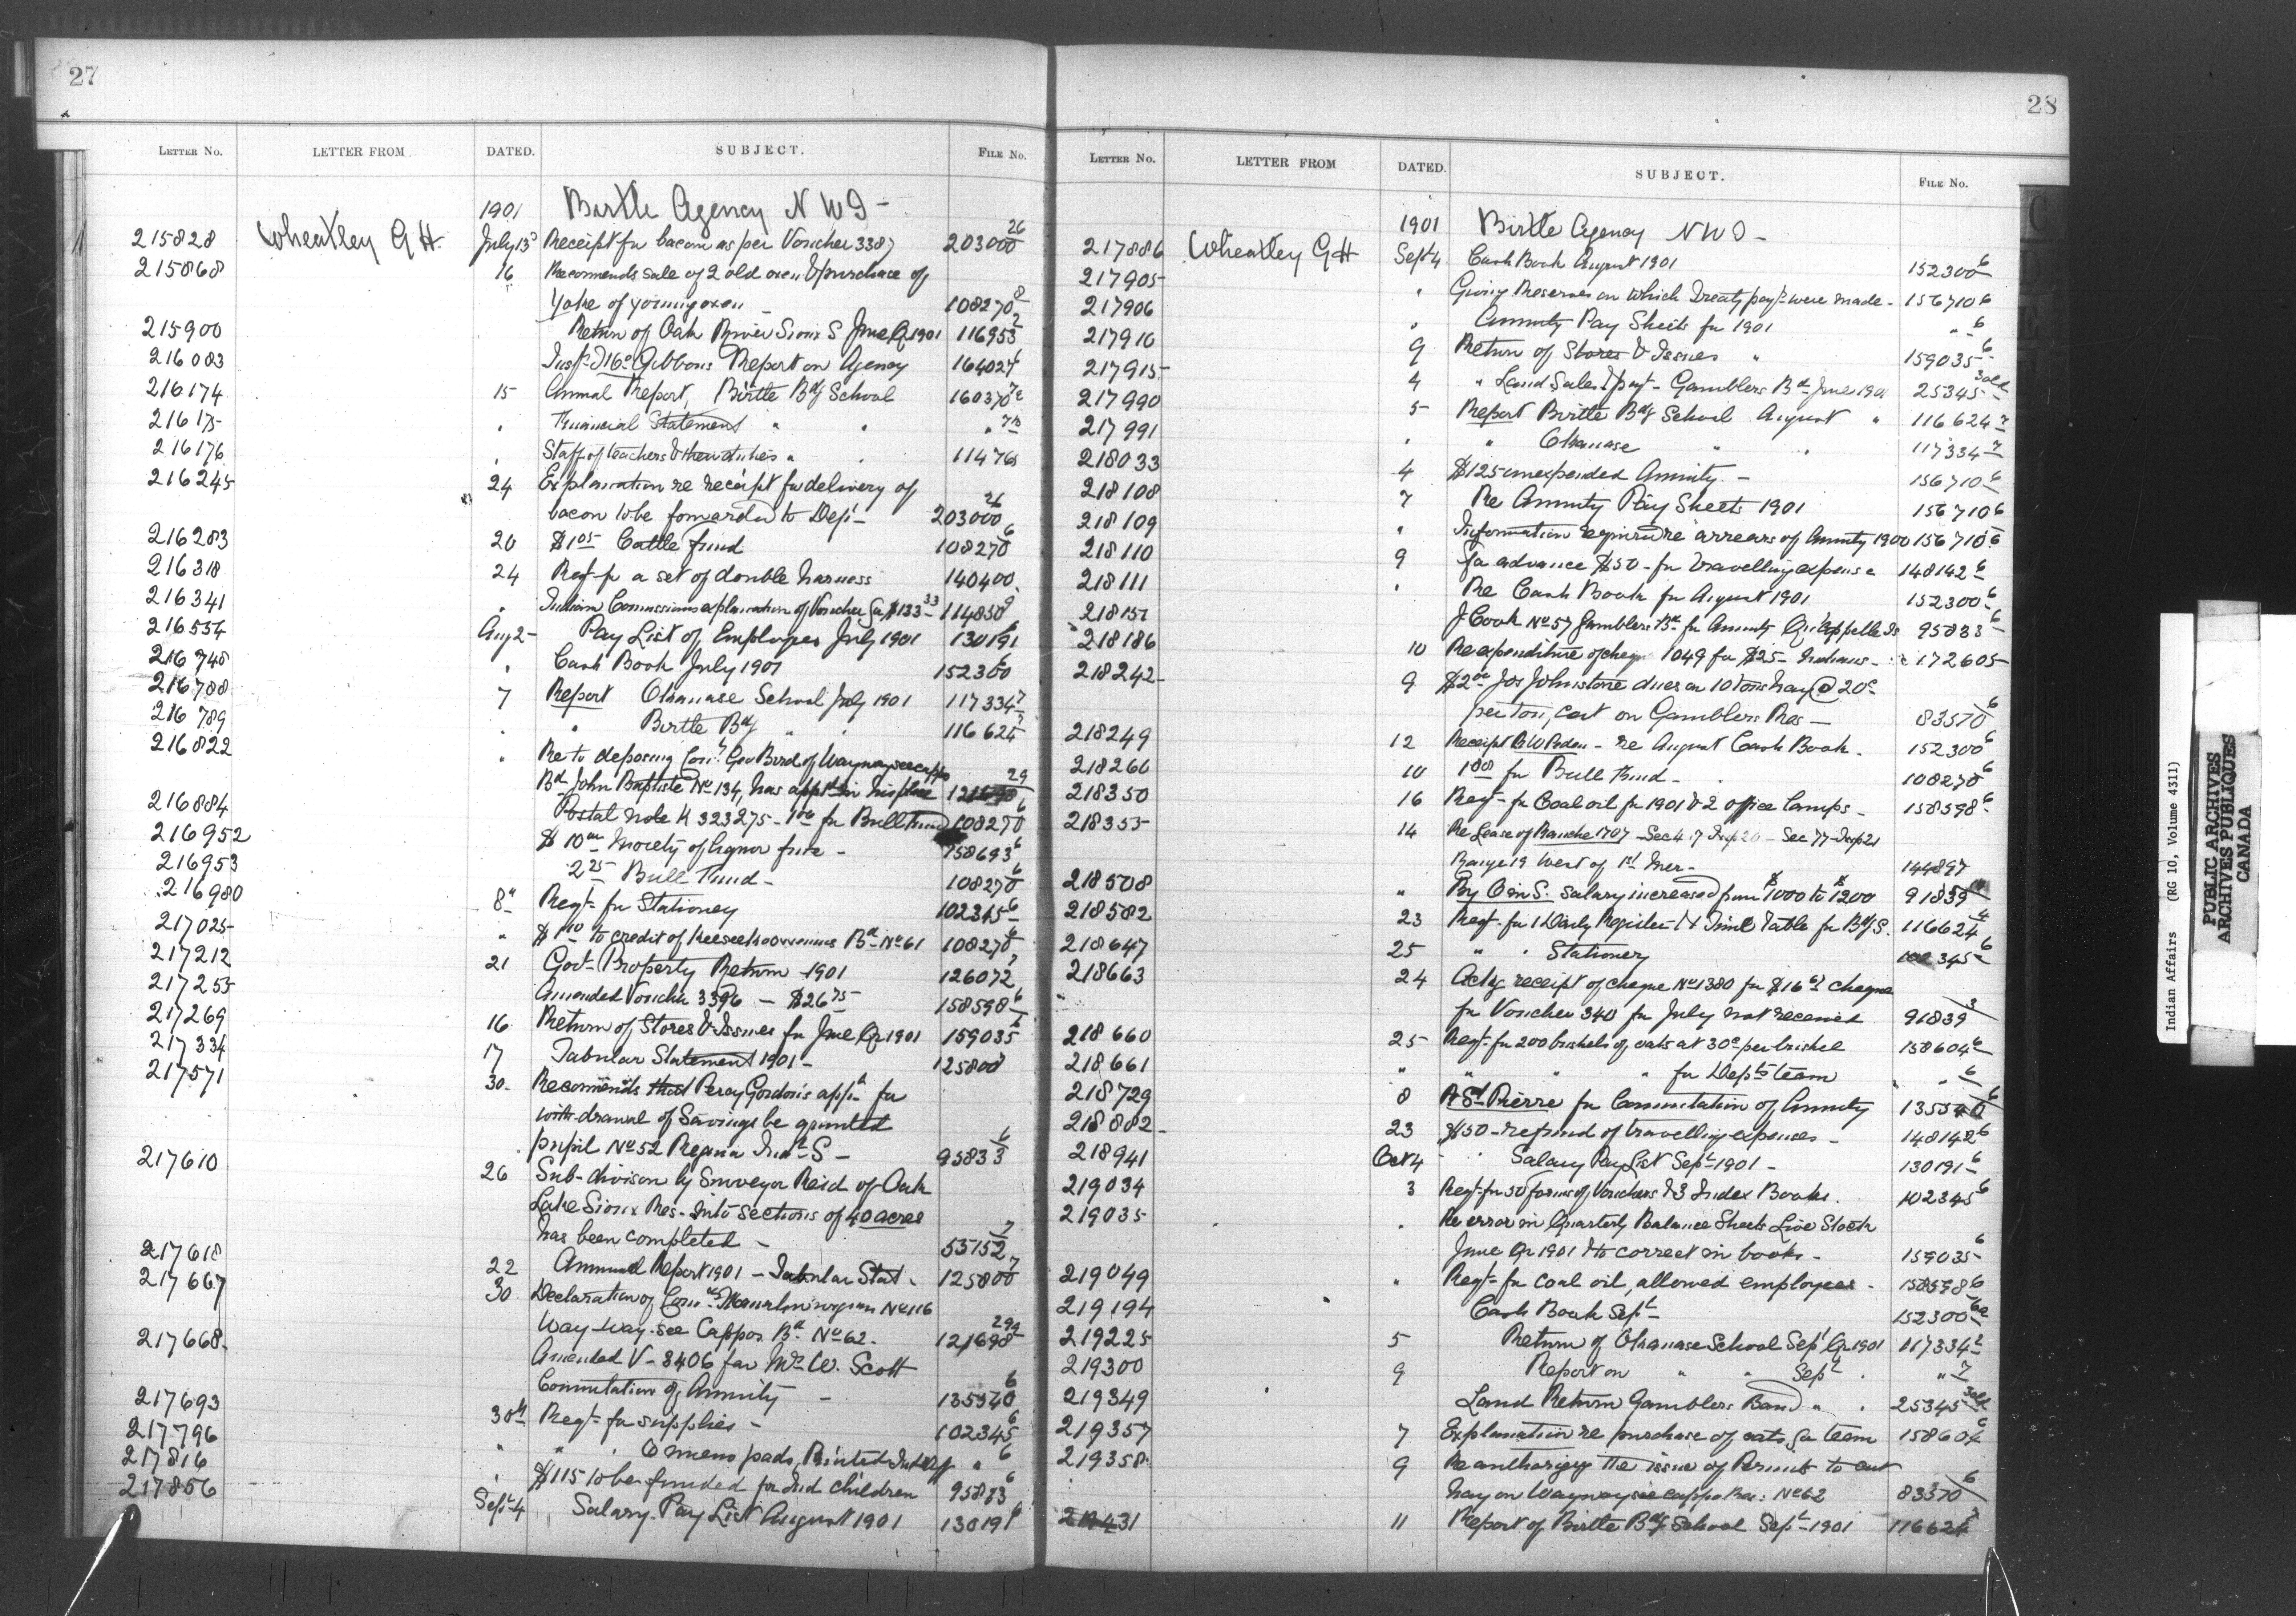 27
LETTER No. LETTER FROM DATED. SUBJECT. FILE No.
1901 Birtle Agency N W T -
215828 Wheatley G H. July 13 Receipt for bacon as per Voucher 3387 203000 26
215868 16 Recomends sale of 2 old oxen & purchase of
Yoke of young oxen 108270 8
215900 Return of Oak River Sioux S June Qr 1901 116953 2
216083 Gibbons Report on Agency 164027
216174 15 Annual Report, Birtle Bdg School 160370
216175 " Financial Statement " "
216176 " Staff of teachers & their duties " 11476
216245 24 Explanation re receipt for delivery of
bacon to be forwarded to Dept - 203000 26
216283 20 $1.05 Cattle fund 108270 6
216318 24 Reqt for a set of double harness 140400
216341 " Indian Commissioners explanation of Voucher for $133 33 114850 9
216554 Aug 2 - Pay List of Employees July 1901 130191
216748 " Cash Book July 1901 152300 6
216788 7 Report Okanase School July 1901 117334 7
216789 " " Birtle Bdg " " 116624 7
216822 " Re to deposing Geo Bird of Waywayseecappo
Bd John Baptiste No 134, has in his place 29
216884 Postal note K 323275 - 1 00 for Bull Fund 108270 6
216952 $10 00 Moiety of liquor fine - 158693 6
216953 2 25 Bull Fund - 108270 6
216980 8" Reqt for Stationery 102345 6
217025 " to credit of Keeseekoowenins Bd No 61 108270 6
217212 21 Govt Property Return 1901 126072 2
217255 Amended Voucher 3396 - $26 75 158598 6
217269 16 Return of Stores & Issues for June Qr 1901 159035 6
217334 17 Tabular Statement 1901 - 125800
217571 30 - Recomends that Percy Gordon's appn for
withdrawal of Savings be granted
pupil No 52 Regina Indl S - 95833 6
217610 26 Sub-divison by Surveyor Reid of Oak
Lake Sioux Res - into sections of 40 acres
has been completed - 55152 7
217618 22 Annual Report 1901 - Tabular Stat. 125800 7
217667 30 Declaration of No 116
Way-way-see Cappos Bd No 62. 121698 29
217668 Amended V - 3406 for Mr W. Scott
Commutation of Annuity - 135540 6
217693 30th Reqt for supplies - 102345 6
217796 " " " 6 memo pads, " 6
217816 " $115 to be funded for Ind children 95833 6
217856 Sept 4 Salary Pay List August 1901 130191 6
28
LETTER No. LETTER FROM DATED. SUBJECT. FILE No.
1901 Birtle Agency N W T -
217886 Wheatley G H Sept 4 Cash Book August 1901 152300 6
217905 " Giving Reserves on which Treaty payts were made - 156710 6
217906 " Annuity Pay Sheets for 1901 " 6
217910 9 Return of Stores & Issues " 159035 6
217915 4 " Land Sales & payt - Gamblers Bd June 1901 25345
217990 5 Report Birtle Bdg School August " 116624 7
217991 " " Okanase " " 117334 7
218033 4 $125 unexpended Annuity - 156710 6
218108 7 Re Annuity Pay Sheets 1901 156710 6
218109 " Information required re arrears of Annuity 1900 156710 6
218110 9 for advance $50 - for travelling expense 148142 6
218111 " Re Cash Book for August 1901 152300 6
218151 J Cook No 57 Gamblers Bd for Annuity Qu'Appelle Is 95833 6
218186 10 Re expenditure of cheque 1049 for $25 - Indians - 172605
218242 9 $2 00 Jos Johnstone dues on 10 tons hay @ 20c
per ton, cut on Gamblers Res - 83570 6
218249 12 Receipt - re August Cash Book. 152300 6
218260 10 for Bull Fund - 108270 6
218350 16 Reqt for Coal oil for 1901 & 2 office lamps - 158598 6
218355 14 Re Lease of Ranche 1707 - Sec 4
Range 19 West of 1st Mer - 144897
218508 " By O in S. Salary increased from $1000 to $1200 91839
218582 23 Reqt for 1 Daily Register & 1 Time Table for Bdg S. 116624
218647 25 " " Stationery 102345 6
218663 24 Ackg receipt of cheque No 1380 for $16 cheque
for Voucher 340 for July not received 91839 3
218660 25 Reqt for 200 bushels of oats at 30c per bushel 158604 6
218661 " " " for Depts team " " 6
218729 8 A St Pierre for Commutation of Annuity 135540 6
218882 23 $50 - refund of travelling expenses - 148142 6
218941 Oct 4 Salary Pay List Sept 1901 - 130191 6
219034 3 Reqt for 50 forms of Vouchers & 3 Index Books. 102345 6
219035 " Re error in Quarterly Balance Sheets Live Stock
June Qr 1901 & to correct in books - 159035 6
219049 " Reqt for coal oil, allowed employees - 158598 6
219194 Cash Book Sept 152300
219225 5 Return of Okanase School Sept Qr 1901 117334
219300 9 Report on " " Sept " " 7
219349 Land Return Gamblers Band " " 25345
219357 7 Explanation re purchase of oats for team 158604 6
219358 9 Re authorizing the issue of Permits to cut
hay on Waywayseecappo Res: No 62 83570 6
11 Report of Birtle Bdg School Sept 1901 116624
Indian Affairs (RG 10, Volume 4311)
PUBLIC ARCHIVES
ARCHIVES PUBLIQUES
CANADA